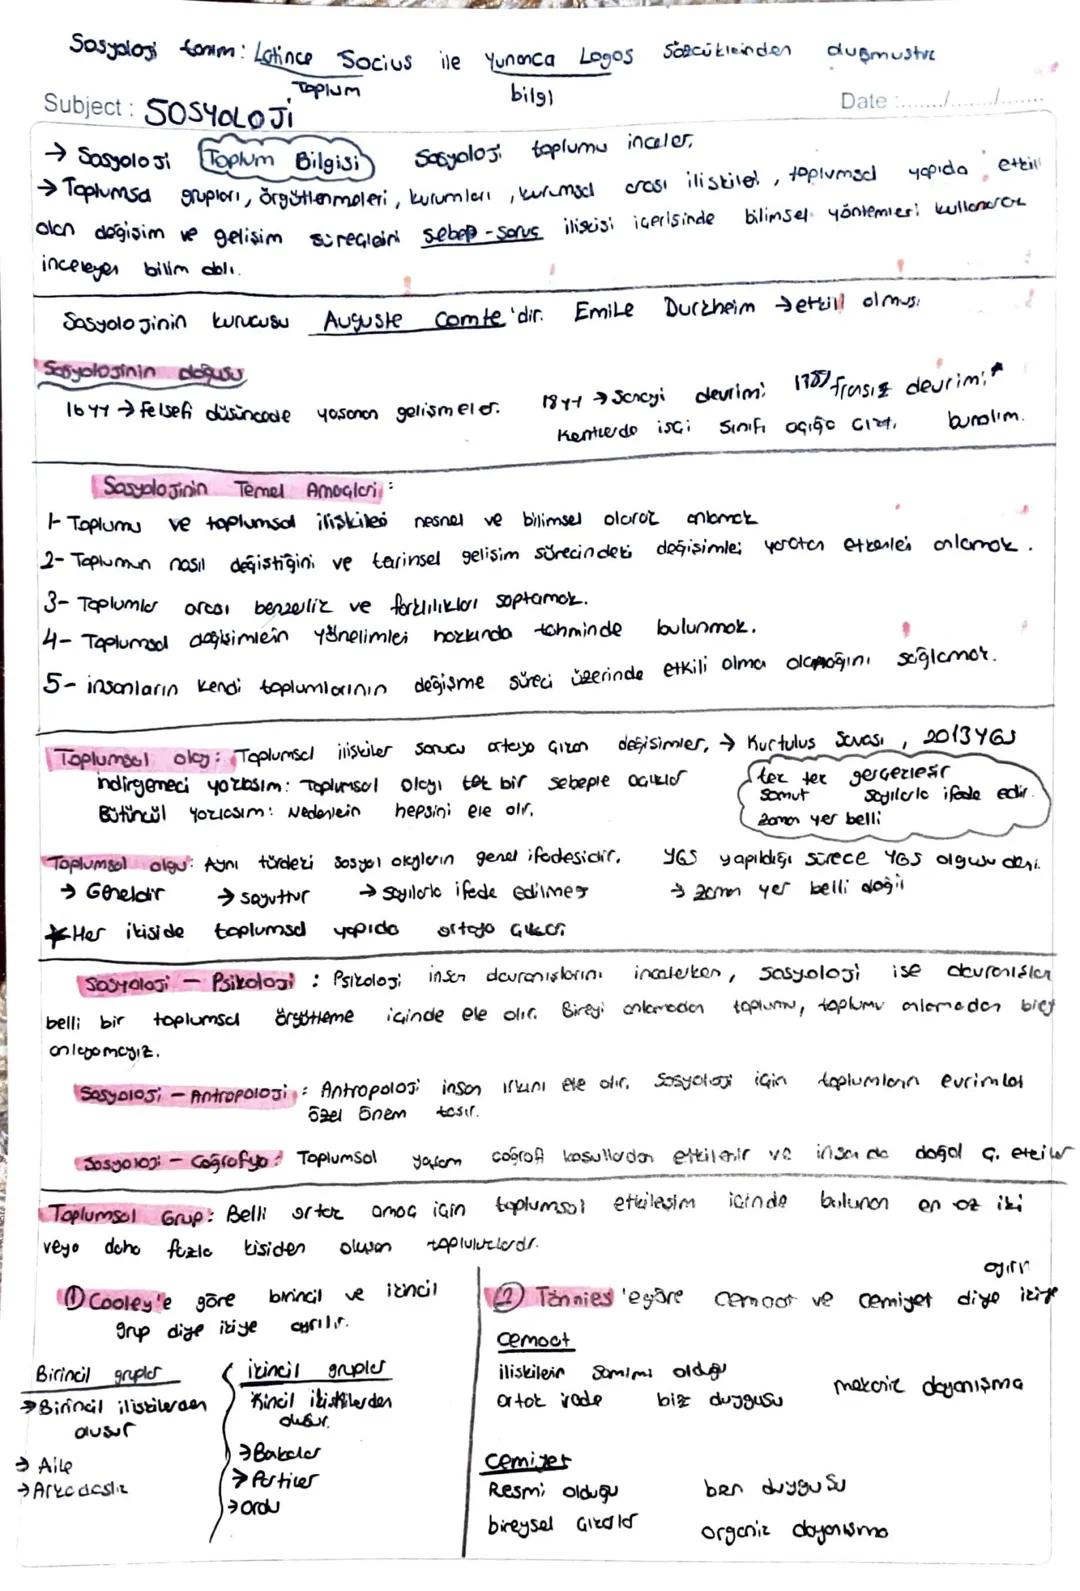 Sosyoloji tanım: Latince Socius ile Yunanca Logos sözcüklerinden oluşmuştur
Toplum bilgi
Subject: SOSYOLOJİ Date :......./......../.......
→ Sosyoloji Toplum Bilgisi Sosyoloji toplumu inceler.
→ Toplumsal grupları, örgütlenmeleri, kurumları, kurumsal arası ilişkileri, toplumsal yapıda etkili
olan değişim ve gelişim süreçlerini sebep-sonuç ilişkisi içerisinde bilimsel yöntemleri kullanarak
inceleyen bilim dalı.
Sosyolojinin kurucusu Auguste Comte'dir. Emile Durkheim → etkili olmuş.
Sosyolojinin doğuşu
16yy → felsefi düşüncede yaşanan gelişmeler. 18yy → Sanayi devrimi 1789 fransız devrimi *
Kentlerde işçi sınıfı açığa çıktı. bunalım.
Sosyolojinin Temel Amaçları:
1- Toplumu ve toplumsal ilişkileri nesnel ve bilimsel olarak anlamak
2- Toplumun nasıl değiştiğini ve tarihsel gelişim sürecindeki değişimleri yaratan etkenleri anlamak.
3- Toplumlar arası benzerlik ve farklılıkları saptamak.
4- Toplumsal değişimlerin yönelimleri hakkında tahminde bulunmak.
5- insanların kendi toplumlarının değişme süreci üzerinde etkili olma olanağını sağlamak.
Toplumsal olay: Toplumsal ilişkiler sonucu ortaya çıkan değişimler. → Kurtuluş Savaşı, 2013 YGS
indirgemeci yaklaşım: Toplumsal olayı tek bir sebeple açıklar
Bütüncül yaklaşım: Nedenlerin hepsini ele alır.
tek tek gerçekleşir
somut sayılarla ifade edir.
zaman yer belli
Toplumsal olgu: Aynı türdeki sosyal olayların genel ifadesidir. YGS yapıldığı sürece YGS olgusu denir.
→ Geneldir → soyuttur → sayılarla ifade edilmez → zaman yer belli değil
* Her ikiside toplumsal yapıda ortaya çıkar.
Sosyoloji - Psikoloji : Psikoloji insan davranışlarını incelerken, sosyoloji ise davranışları
belli bir toplumsal örgütleme içinde ele alır. Bireyi anlamadan toplumu, toplumu anlamadan birey
anlayamayız.
Sosyoloji - Antropoloji : Antropoloji insan ırkını ele alır. Sosyoloji için toplumların evrimleri
özel önem taşır.
Sosyoloji - Coğrafya : Toplumsal yaşam coğrafi koşullardan etkilenir ve insan da doğal ç. etkiler
Toplumsal Grup: Belli ortak amaç için toplumsal etkileşim içinde bulunan en az iki
veya daha fazla kişiden oluşan topluluklardır.
① Cooley'e göre birincil ve ikincil
grup diye ikiye ayrılır.
Birincil gruplar
→ Birincil ilişkilerden
oluşur
→ Aile
→ Arkadaşlık
ikincil gruplar
ikincil ilişkilerden
oluşur.
→ Bakalar
→ Partiler
→ Ordu
② Tönnies'e göre cemaat ve cemiyet diye ikiye
ayırır
Cemaat
ilişkilerin samimi olduğu
ortak irade biz duygusu mekanik dayanışma
Cemiyet
Resmi olduğu ben duygusu
bireysel çıkarlar organik dayanışma